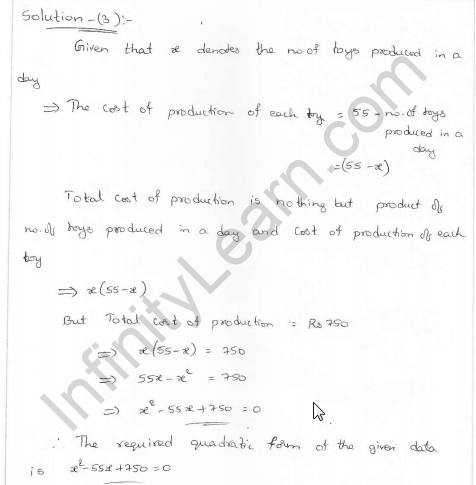 Solution-(3):-
Given that x denotes the no.of toys produced in a
day
⇒ The cost of production of each toy = 55 - no.of toys
produced in a
day
=(55-x)
Total cost of production is nothing but product of
no.of toys produced in a day and cost of production of each
toy
⇒ x(55-x)
But Total cost of production := Rs 750
⇒ x(55-x) = 750
⇒ 55x-x² = 750
⇒ x²-55x+750=0
∴ The required quadratic form of the given data
is x²-55x+750=0
InfinityLearn.com